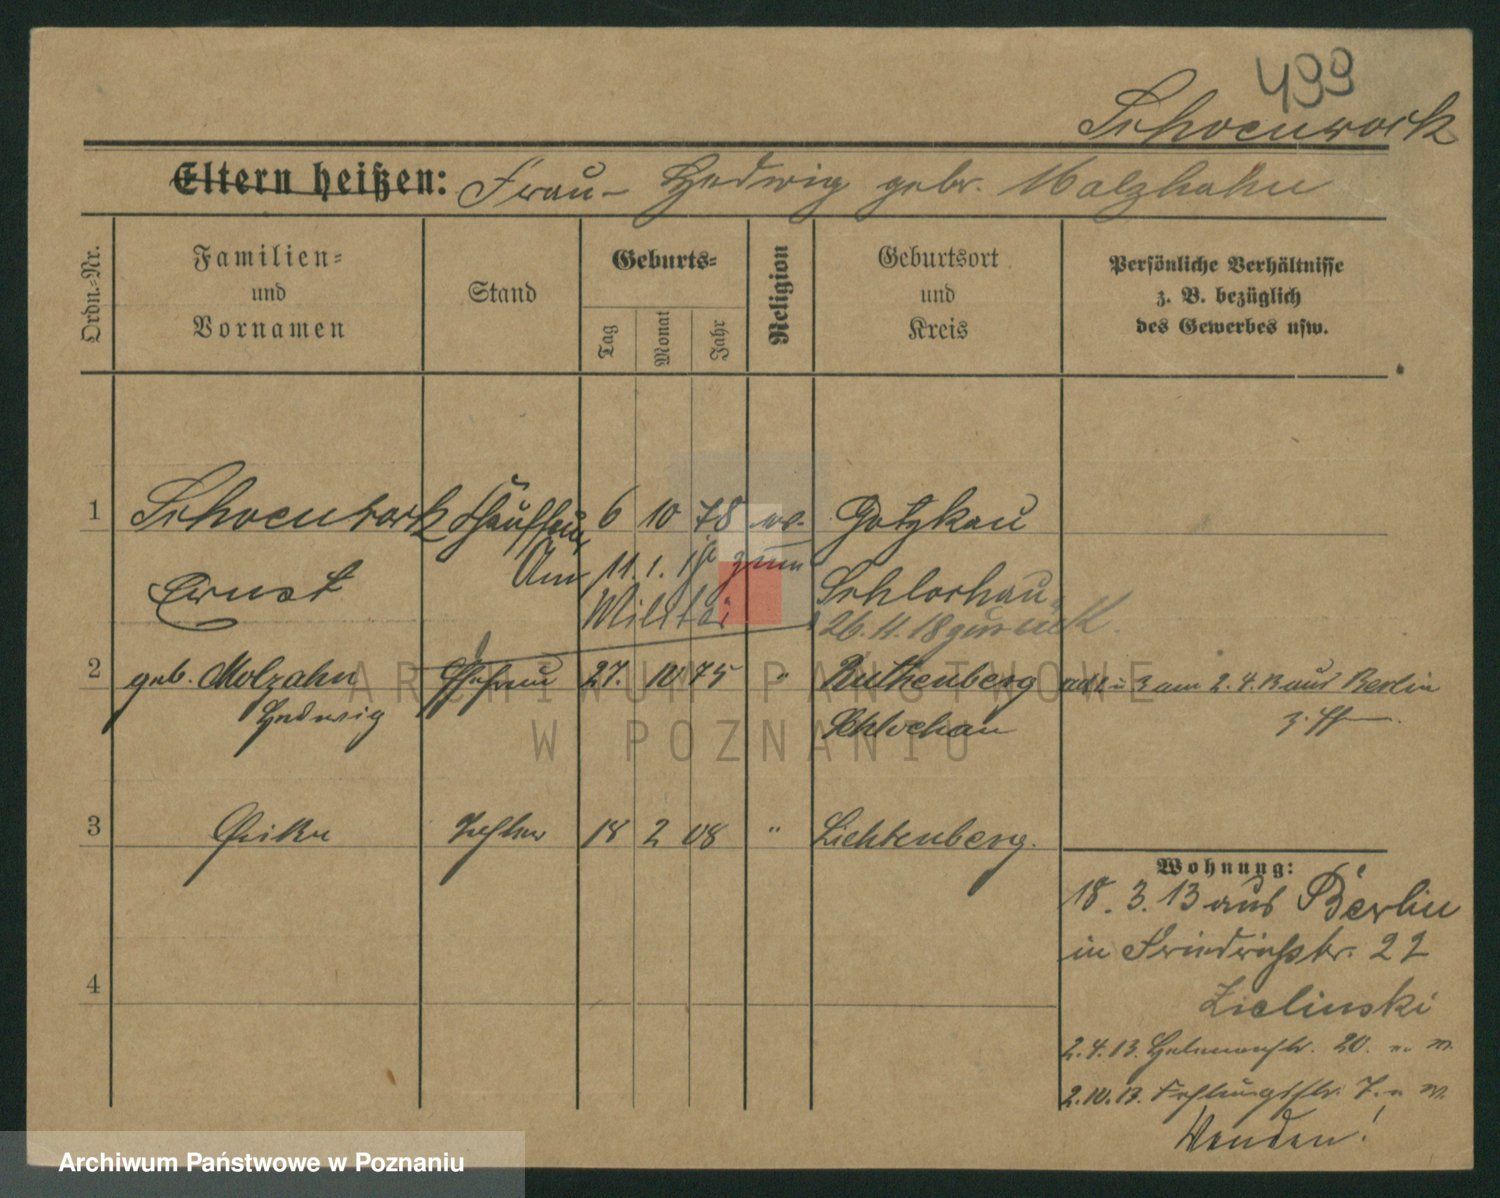 499
Schoenrock
Eltern heißen: Frau Hedwig gebr. Molzhahn
Ordn.-Nr.
Familien-
und
Vornamen
Stand
Geburts-
Tag
Monat
Jahr
Religion
Geburtsort
und
Kreis
Persönliche Verhältnisse
z. B. bezüglich
des Gewerbes usw.
1 Schoenrock 6 10 78 ev. Gotzkau
Am 11. 1. zum
Ernst Schlochau
Militär
26.11.18 zurück
2 geb. Molzahn Ehefrau 27. 10 75 " Ruthenberg ad 2 u 3 am 2.4.13 aus Berlin
Hedwig Schlochau
3 Tochter 18 2 08 " Lichtenberg.
Wohnung:
18. 3. 13 aus Berlin
in Friedrichstr. 22
Zielinski
4
2.4.13. 20.
2.10.13. 7.
Wenden!
ARCHIWUM PAŃSTWOWE
W POZNANIU
Archiwum Państwowe w Poznaniu